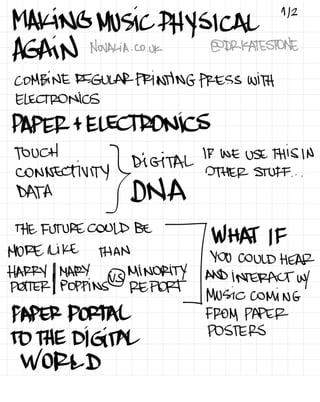 MAKING MUSIC PHYSICAL 1/2
AGAIN NOVALIA.CO.UK @DRKATESTONE
COMBINE REGULAR PRINTING PRESS WITH
ELECTRONICS
PAPER + ELECTRONICS
TOUCH
CONNECTIVITY
DATA
DIGITAL
DNA
IF WE USE THIS IN
OTHER STUFF...
THE FUTURE COULD BE
MORE LIKE THAN
HARRY POTTER | MARY POPPINS VS MINORITY REPORT
WHAT IF
YOU COULD HEAR
AND INTERACT W/
MUSIC COMING
FROM PAPER
POSTERS
PAPER PORTAL
TO THE DIGITAL
WORLD